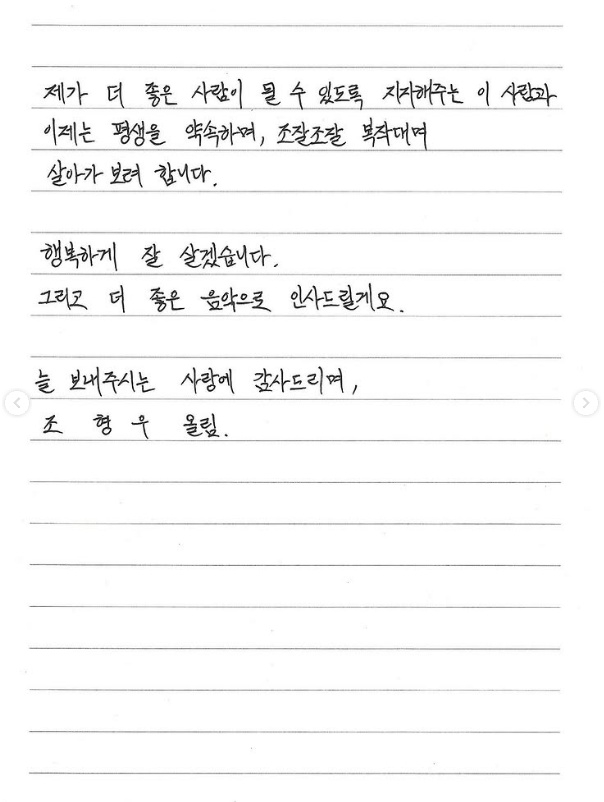 제가 더 좋은 사람이 될 수 있도록 지지해주는 이 사람과
이제는 평생을 약속하며, 조잘조잘 복작대며
살아가 보려 합니다.
행복하게 잘 살겠습니다.
그리고 더 좋은 음악으로 인사드릴게요.
늘 보내주시는 사랑에 감사드리며,
조 형 우 올림.